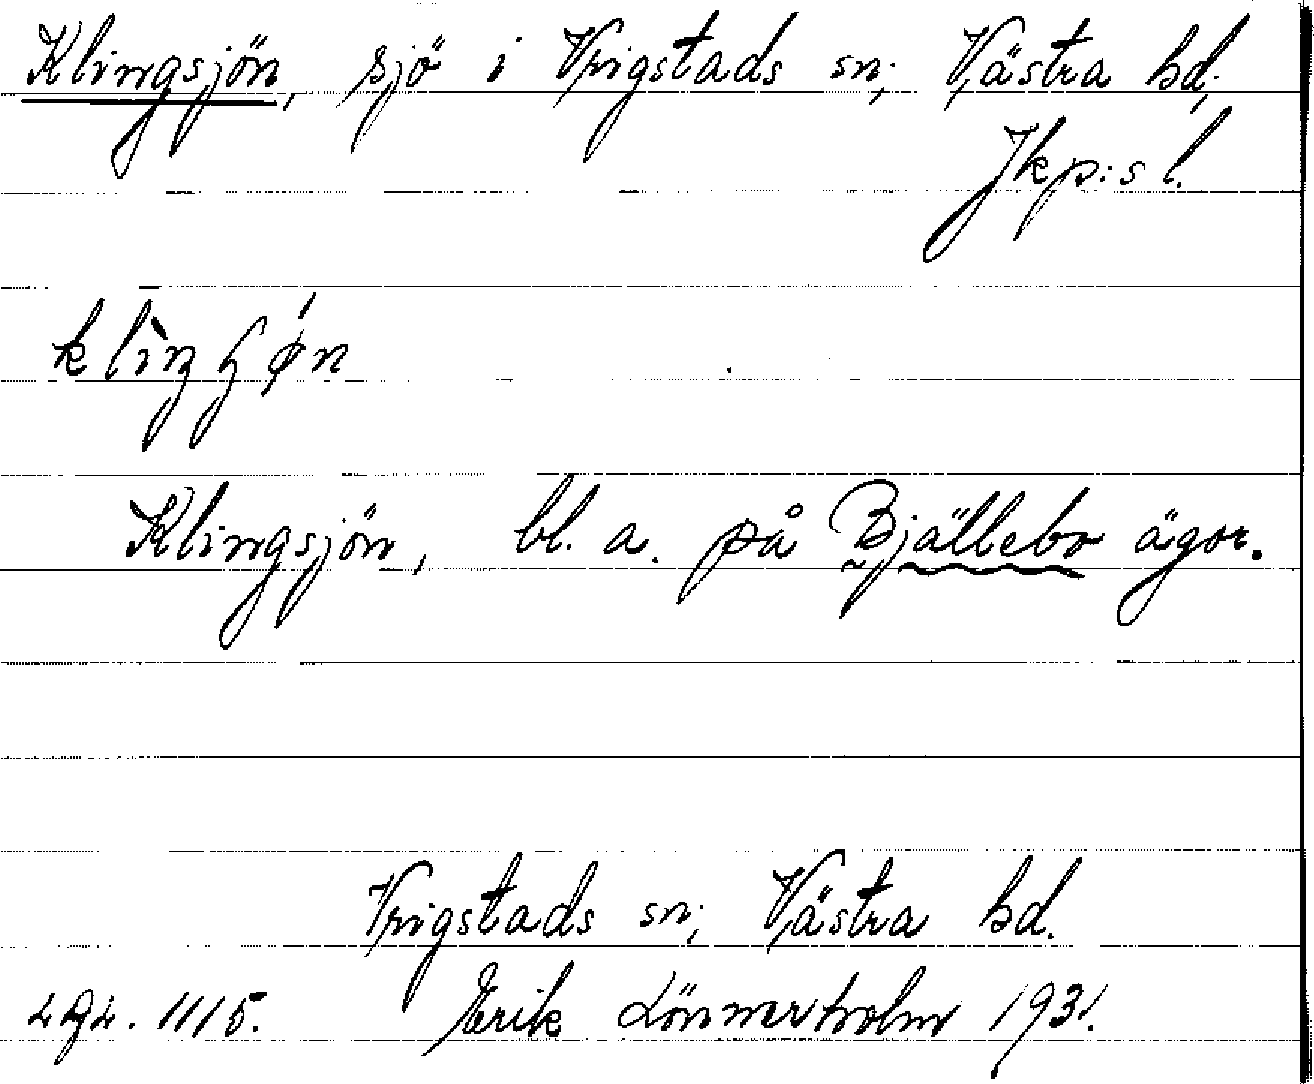 Klingsjön, sjö i Vrigstads sn, Västra hd,
Jkp:s l.
klìŋɧǿn
Klingsjön, bl. a. på Bjällebo ägor.
Vrigstads sn, Västra hd.
1115. Erik Lönnerholm 1931.